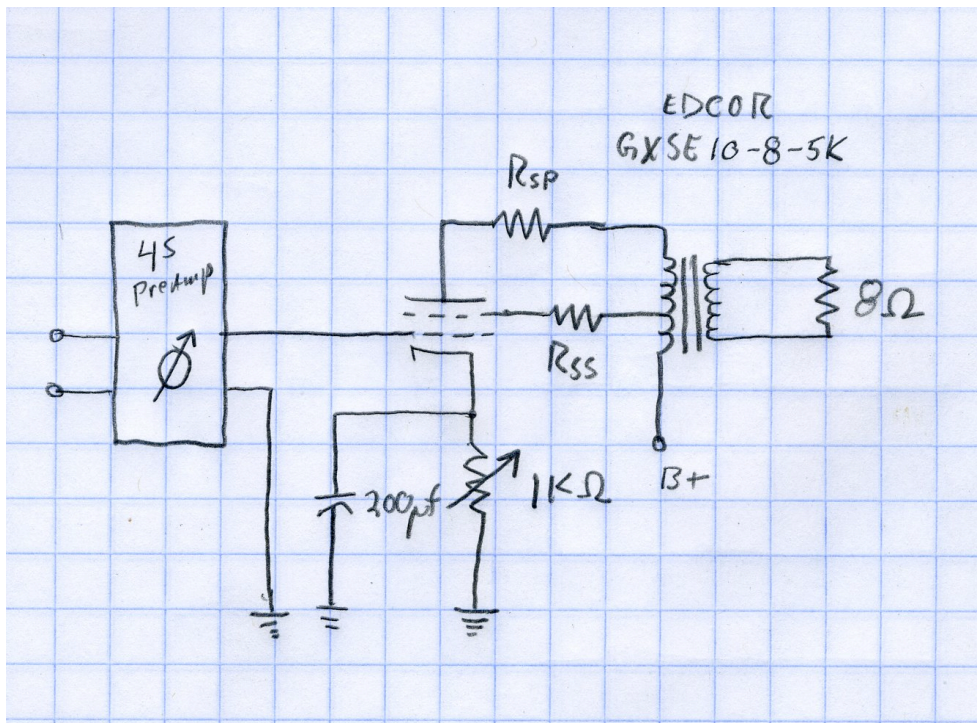 EDCOR
GXSE 10-8-5K
RSP
4S
PreAmp
8Ω
RSS
B+
200µf
1KΩ